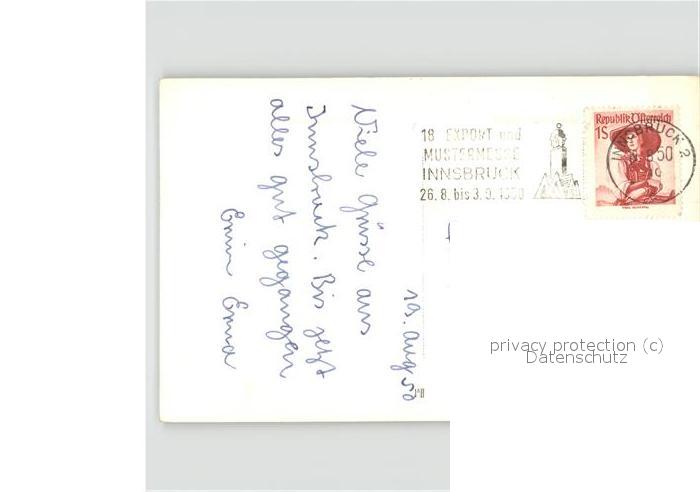 19. Aug 50
Viele Grüsse aus
Innsbruck. Bis jetzt
alles gut gegangen
Erna
18 EXPORT und
MUSTERMESSE
INNSBRUCK
26.8. bis 3.9. 1950
Republik Österreich
1S
INNSBRUCK 2
privacy protection (c)
Datenschutz